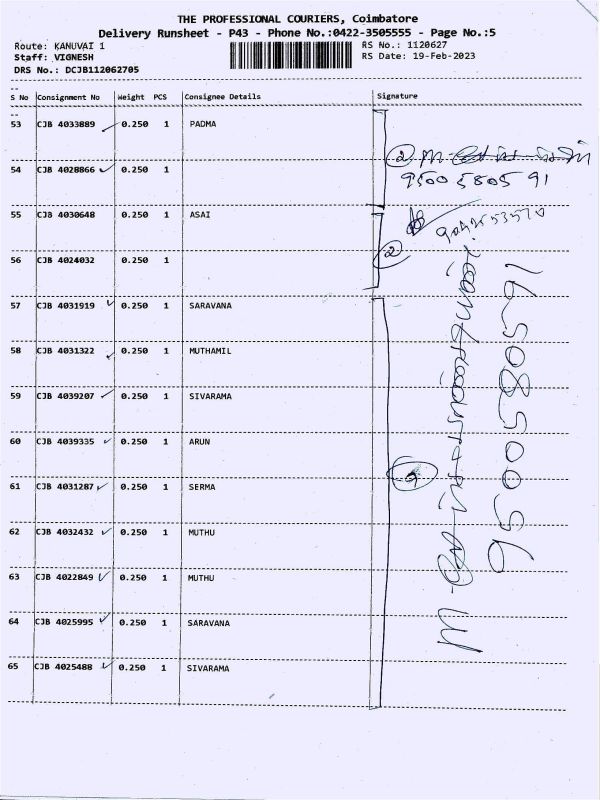 THE PROFESSIONAL COURIERS, Coimbatore
Delivery Runsheet - P43 - Phone No.:0422-3505555 - Page No.:5
Route: KANUVAI 1
RS No.: 1120627
Staff: VIGNESH
RS Date: 19-Feb-2023
DRS No.: DCJB112062705
S No Consignment No Weight PCS Consignee Details Signature
53 CJB 4033889 0.250 1 PADMA
54 CJB 4028866 0.250 1
2
9500580591
55 CJB 4030648 0.250 1 ASAI
56 CJB 4024032 0.250 1
2
57 CJB 4031919 0.250 1 SARAVANA
58 CJB 4031322 0.250 1 MUTHAMIL
59 CJB 4039207 0.250 1 SIVARAMA
60 CJB 4039335 0.250 1 ARUN
61 CJB 4031287 0.250 1 SERMA
9
62 CJB 4032432 0.250 1 MUTHU
63 CJB 4022849 0.250 1 MUTHU
64 CJB 4025995 0.250 1 SARAVANA
65 CJB 4025488 0.250 1 SIVARAMA
9500580591